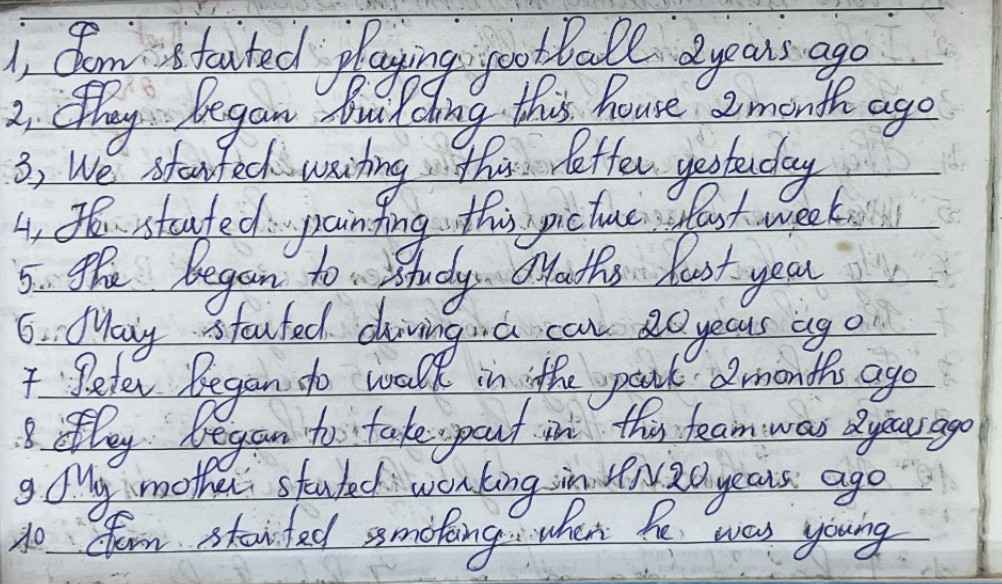 1, Tom started playing football 2 years ago
2, They began building this house 2 month ago
3, We started writing this letter yesterday
4, He started painting this picture last week
5. She began to study Maths last year
6. Mary started driving a car 20 years ago
7 Peter began to walk in the park 2 months ago
8 They began to take part in this team was 2 years ago
9 My mother started working in HN 20 years ago
10 Tom started smoking when he was young